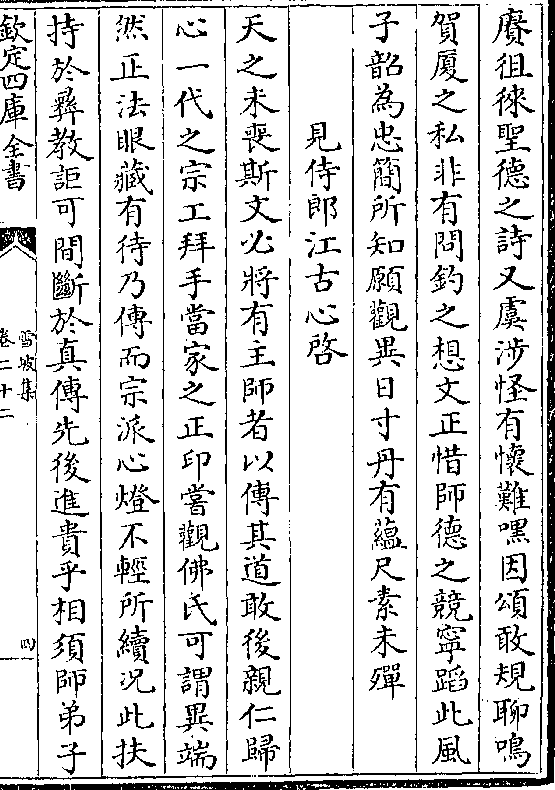 賡徂徠聖德之詩又虞涉怪有懷難嘿因頌敢規聊鳴
賀厦之私非有問釣之想文正惜師德之競寧蹈此風
子韶為忠簡所知願觀異日寸丹有蘊尺素未殫
見侍郎江古心啓
天之未喪斯文必將有主師者以傳其道敢後親仁歸
心一代之宗工拜手當家之正印嘗觀佛氏可謂異端
然正法眼藏有待乃傳而宗派心燈不輕所續況此扶
持於彛教詎可間斷於真傳先後進貴乎相須師弟子
欽定四庫全書
雪坡集
卷二十二
四